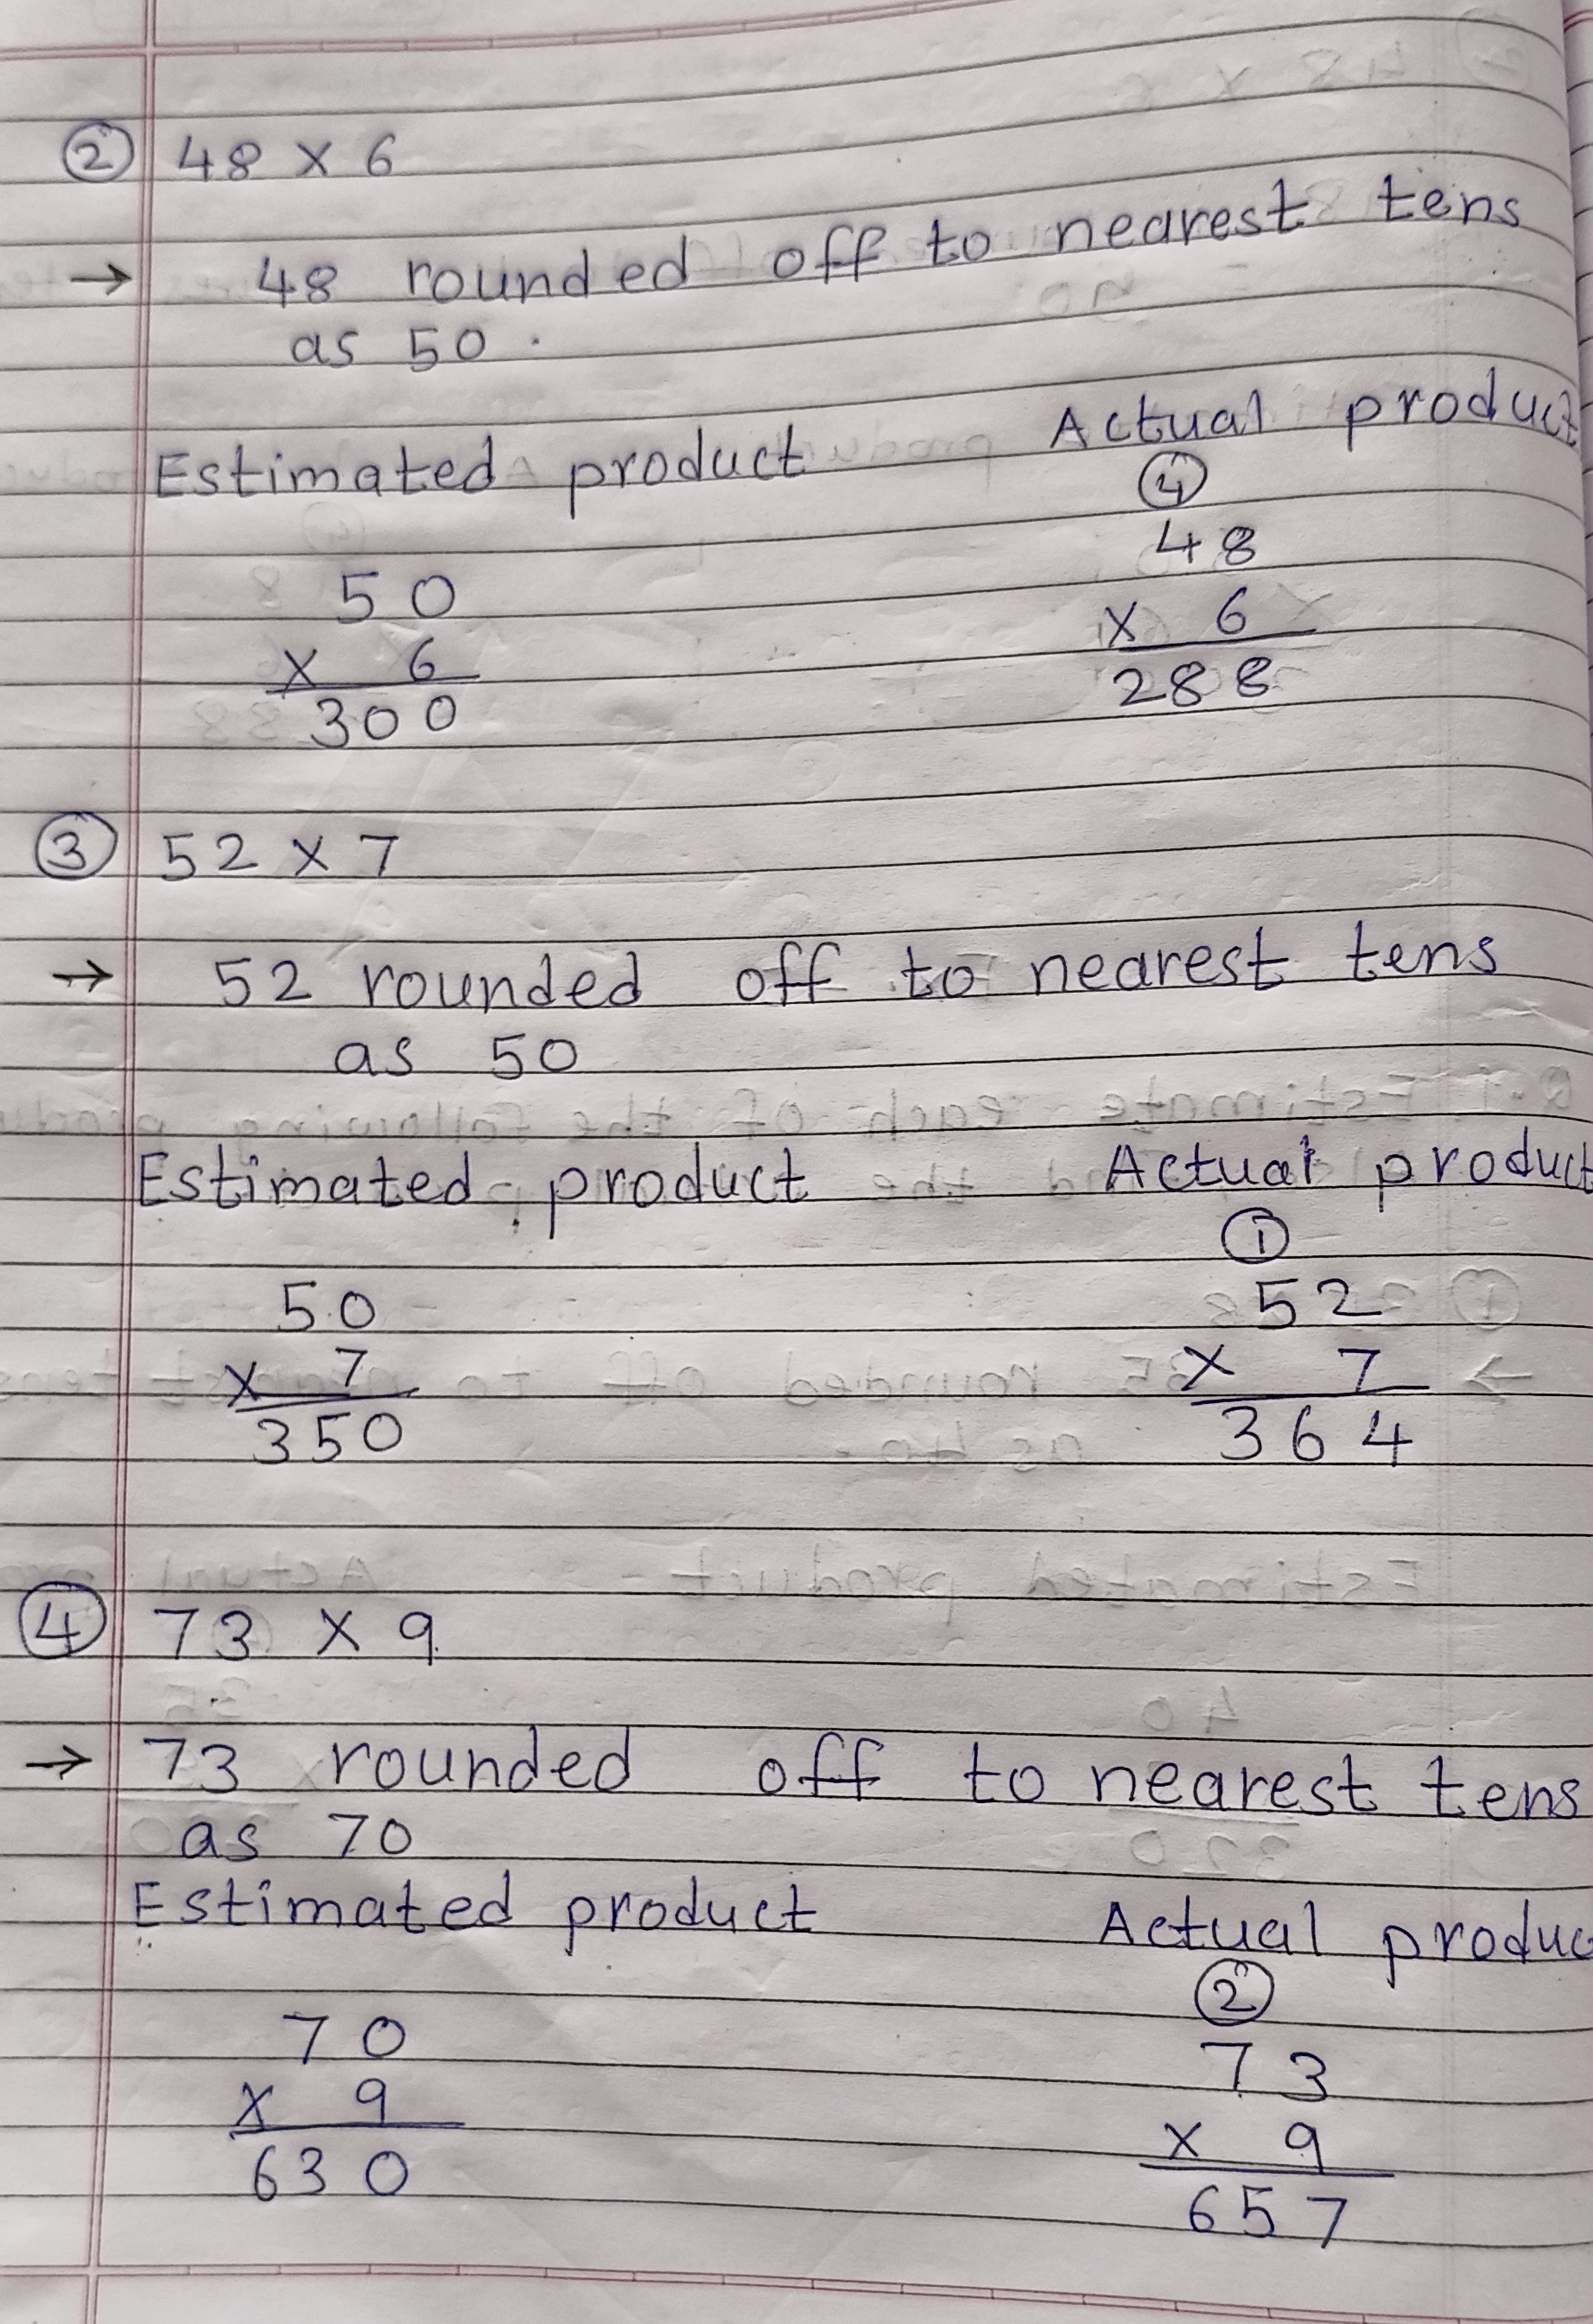 ② 48 × 6
→ 48 rounded off to nearest tens
as 50.
Estimated product Actual product
④
50 48
× 6 × 6
300 288
③ 52 × 7
→ 52 rounded off to nearest tens
as 50
Estimated product Actual product
①
50 52
× 7 × 7
350 364
④ 73 × 9
→ 73 rounded off to nearest tens
as 70
Estimated product Actual produc
②
70 73
× 9 × 9
630 657